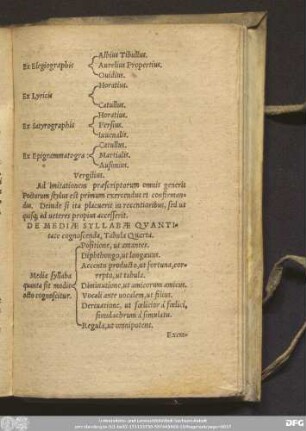 Albius Tibullus.
Ex Elegiographis Aurelius Propertius.
Ouidius.
Horatius.
Ex Lyricis
Catullus.
Horatius.
Ex Satyrographis Persius.
Iuuenalis.
Catullus.
Ex Epigrammatogra: Martialis.
Ausonius.
Vergilius.
Ad Imitationem præscriptorum omnis generis
Poëtarum stylus est primum exercendus et confirman-
dus. Deinde si ita placuerit in recentioribus, sed ut
quisq; ad ueteres propius accesserit.
DE MEDIAE SYLLABAE QVANTI-
tate cognoscenda, Tabula Quarta.
Positione, ut amantes.
Diphthongo, ut longæuus.
Accentu producto, ut fortuna, cor-
repto, ut tabula.
Media syllaba
quanta sit modis Diminutione, ut amicorum amicus.
octo cognoscitur. Vocali ante uocalem, ut filius.
Deriuatione, ut fœlicior à fœlici,
simulachrum à simulatu.
Regula, ut omnipotens.
Excm-